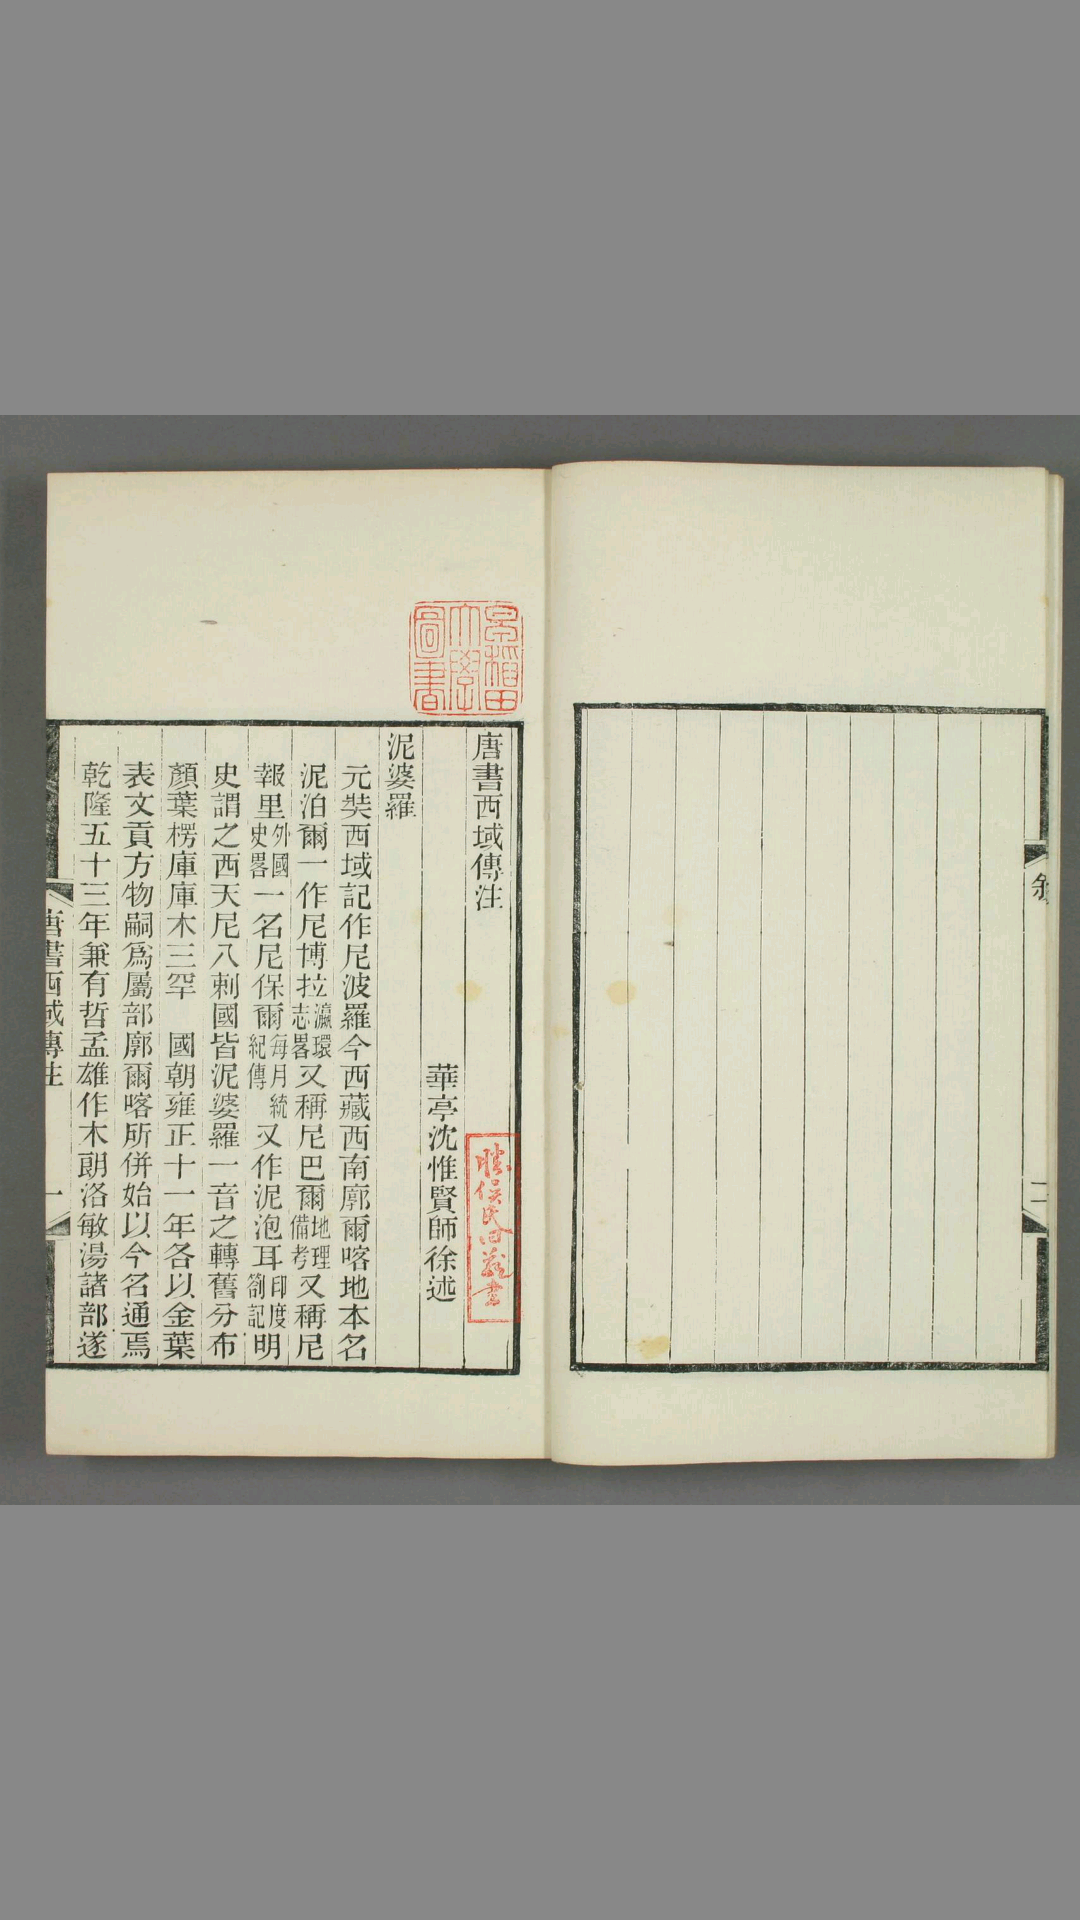 敘
二
早稻田大學圖書
唐書西域傳注
華亭沈惟賢師徐述
泥婆羅
元奘西域記作尼波羅今西藏西南廓爾喀地本名
泥泊爾一作尼博拉瀛環志畧又稱尼巴爾地理備考又稱尼
報里外國史畧一名尼保爾每月統紀傳又作泥泡耳印度劄記明
史謂之西天尼八剌國皆泥婆羅一音之轉舊分布
顏葉楞庫庫木三罕　國朝雍正十一年各以金葉
表文貢方物嗣爲屬部廓爾喀所併始以今名通焉
乾隆五十三年兼有哲孟雄作木朗洛敏湯諸部遂
唐書西域傳注
一